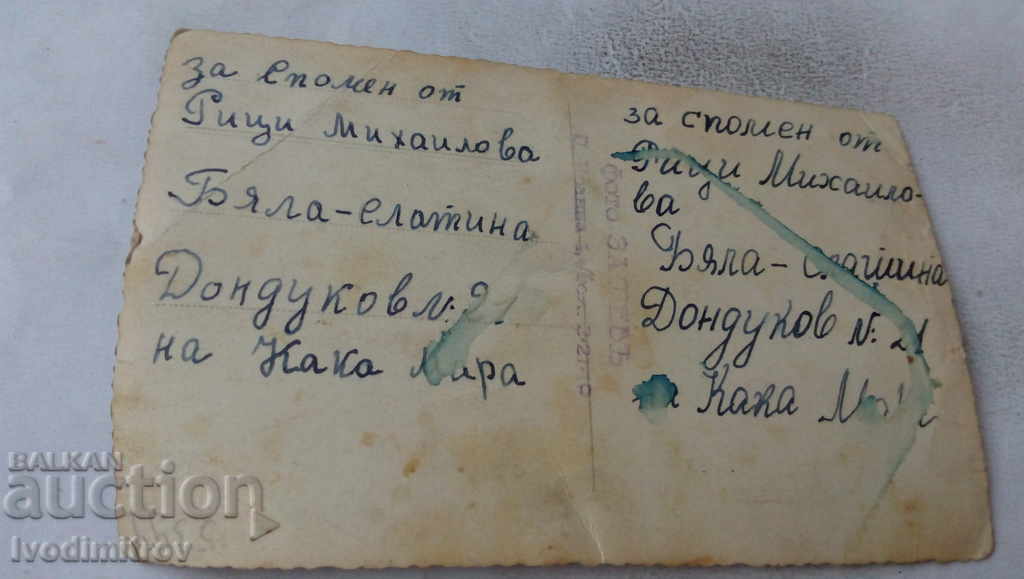 за спомен от
Рици Михаилова
Бяла-Слатина
Дондуков №: 21.
на Кака Мара
за спомен от
Рици Михаило-
ва
Бяла-Слатина
Дондуков №: 21
на Кака
ФОТО ЗЛАТЕВЪ
BALKAN
auction
Ivodimitrov